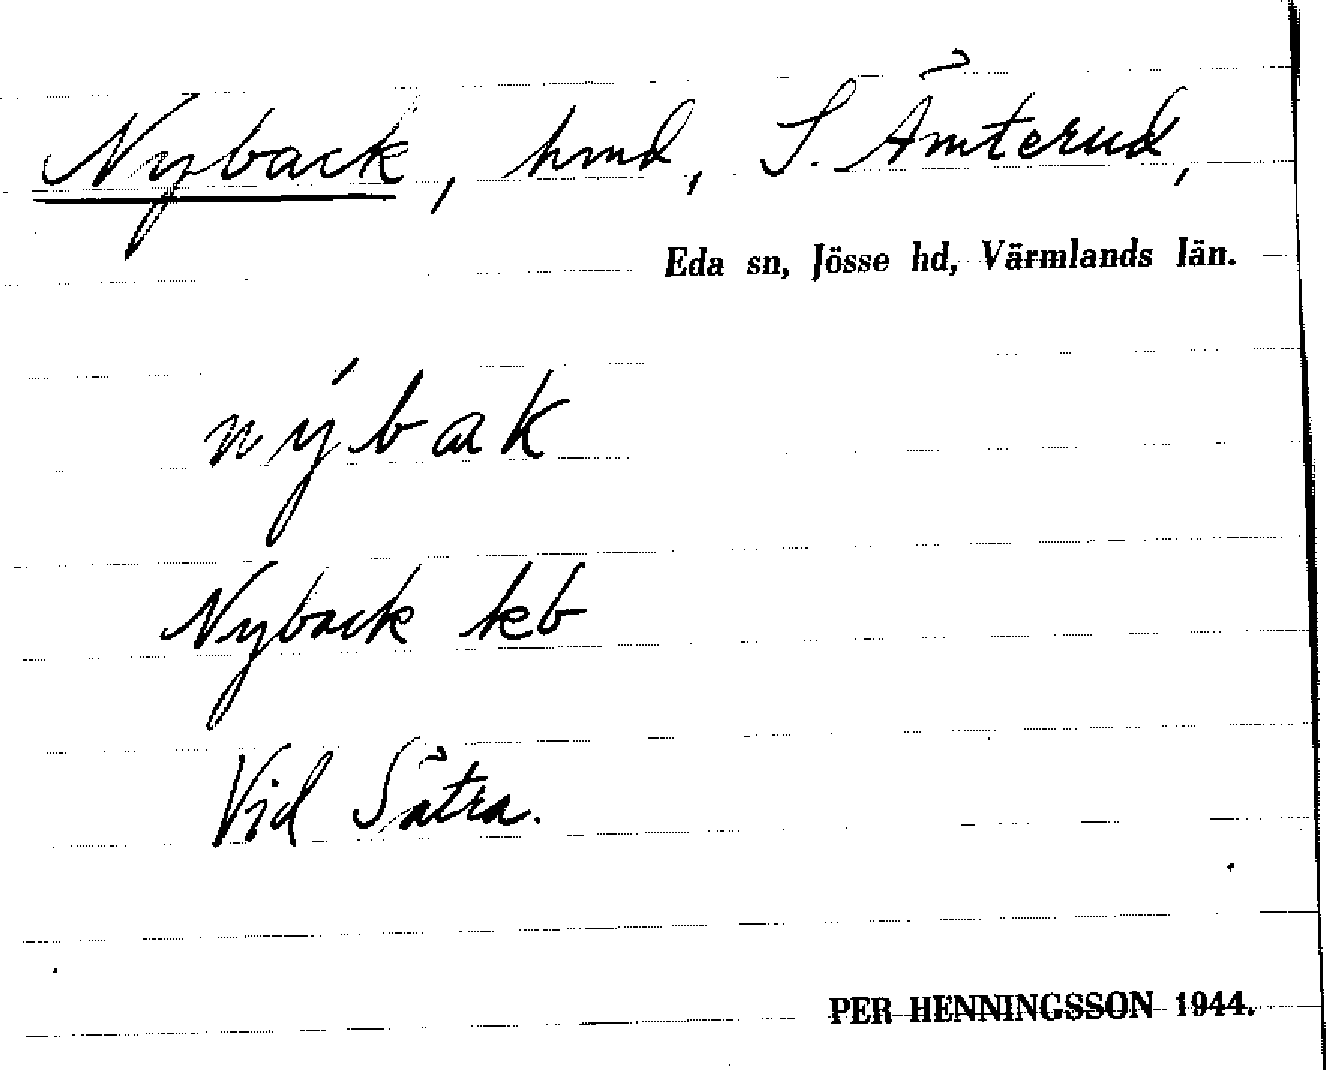 Nyback, hmd, S. Ämterud,
Eda sn, Jösse hd, Värmlands län.
nýbak
Nyback kb
Vid Sätra.
PER HENNINGSSON 1944.